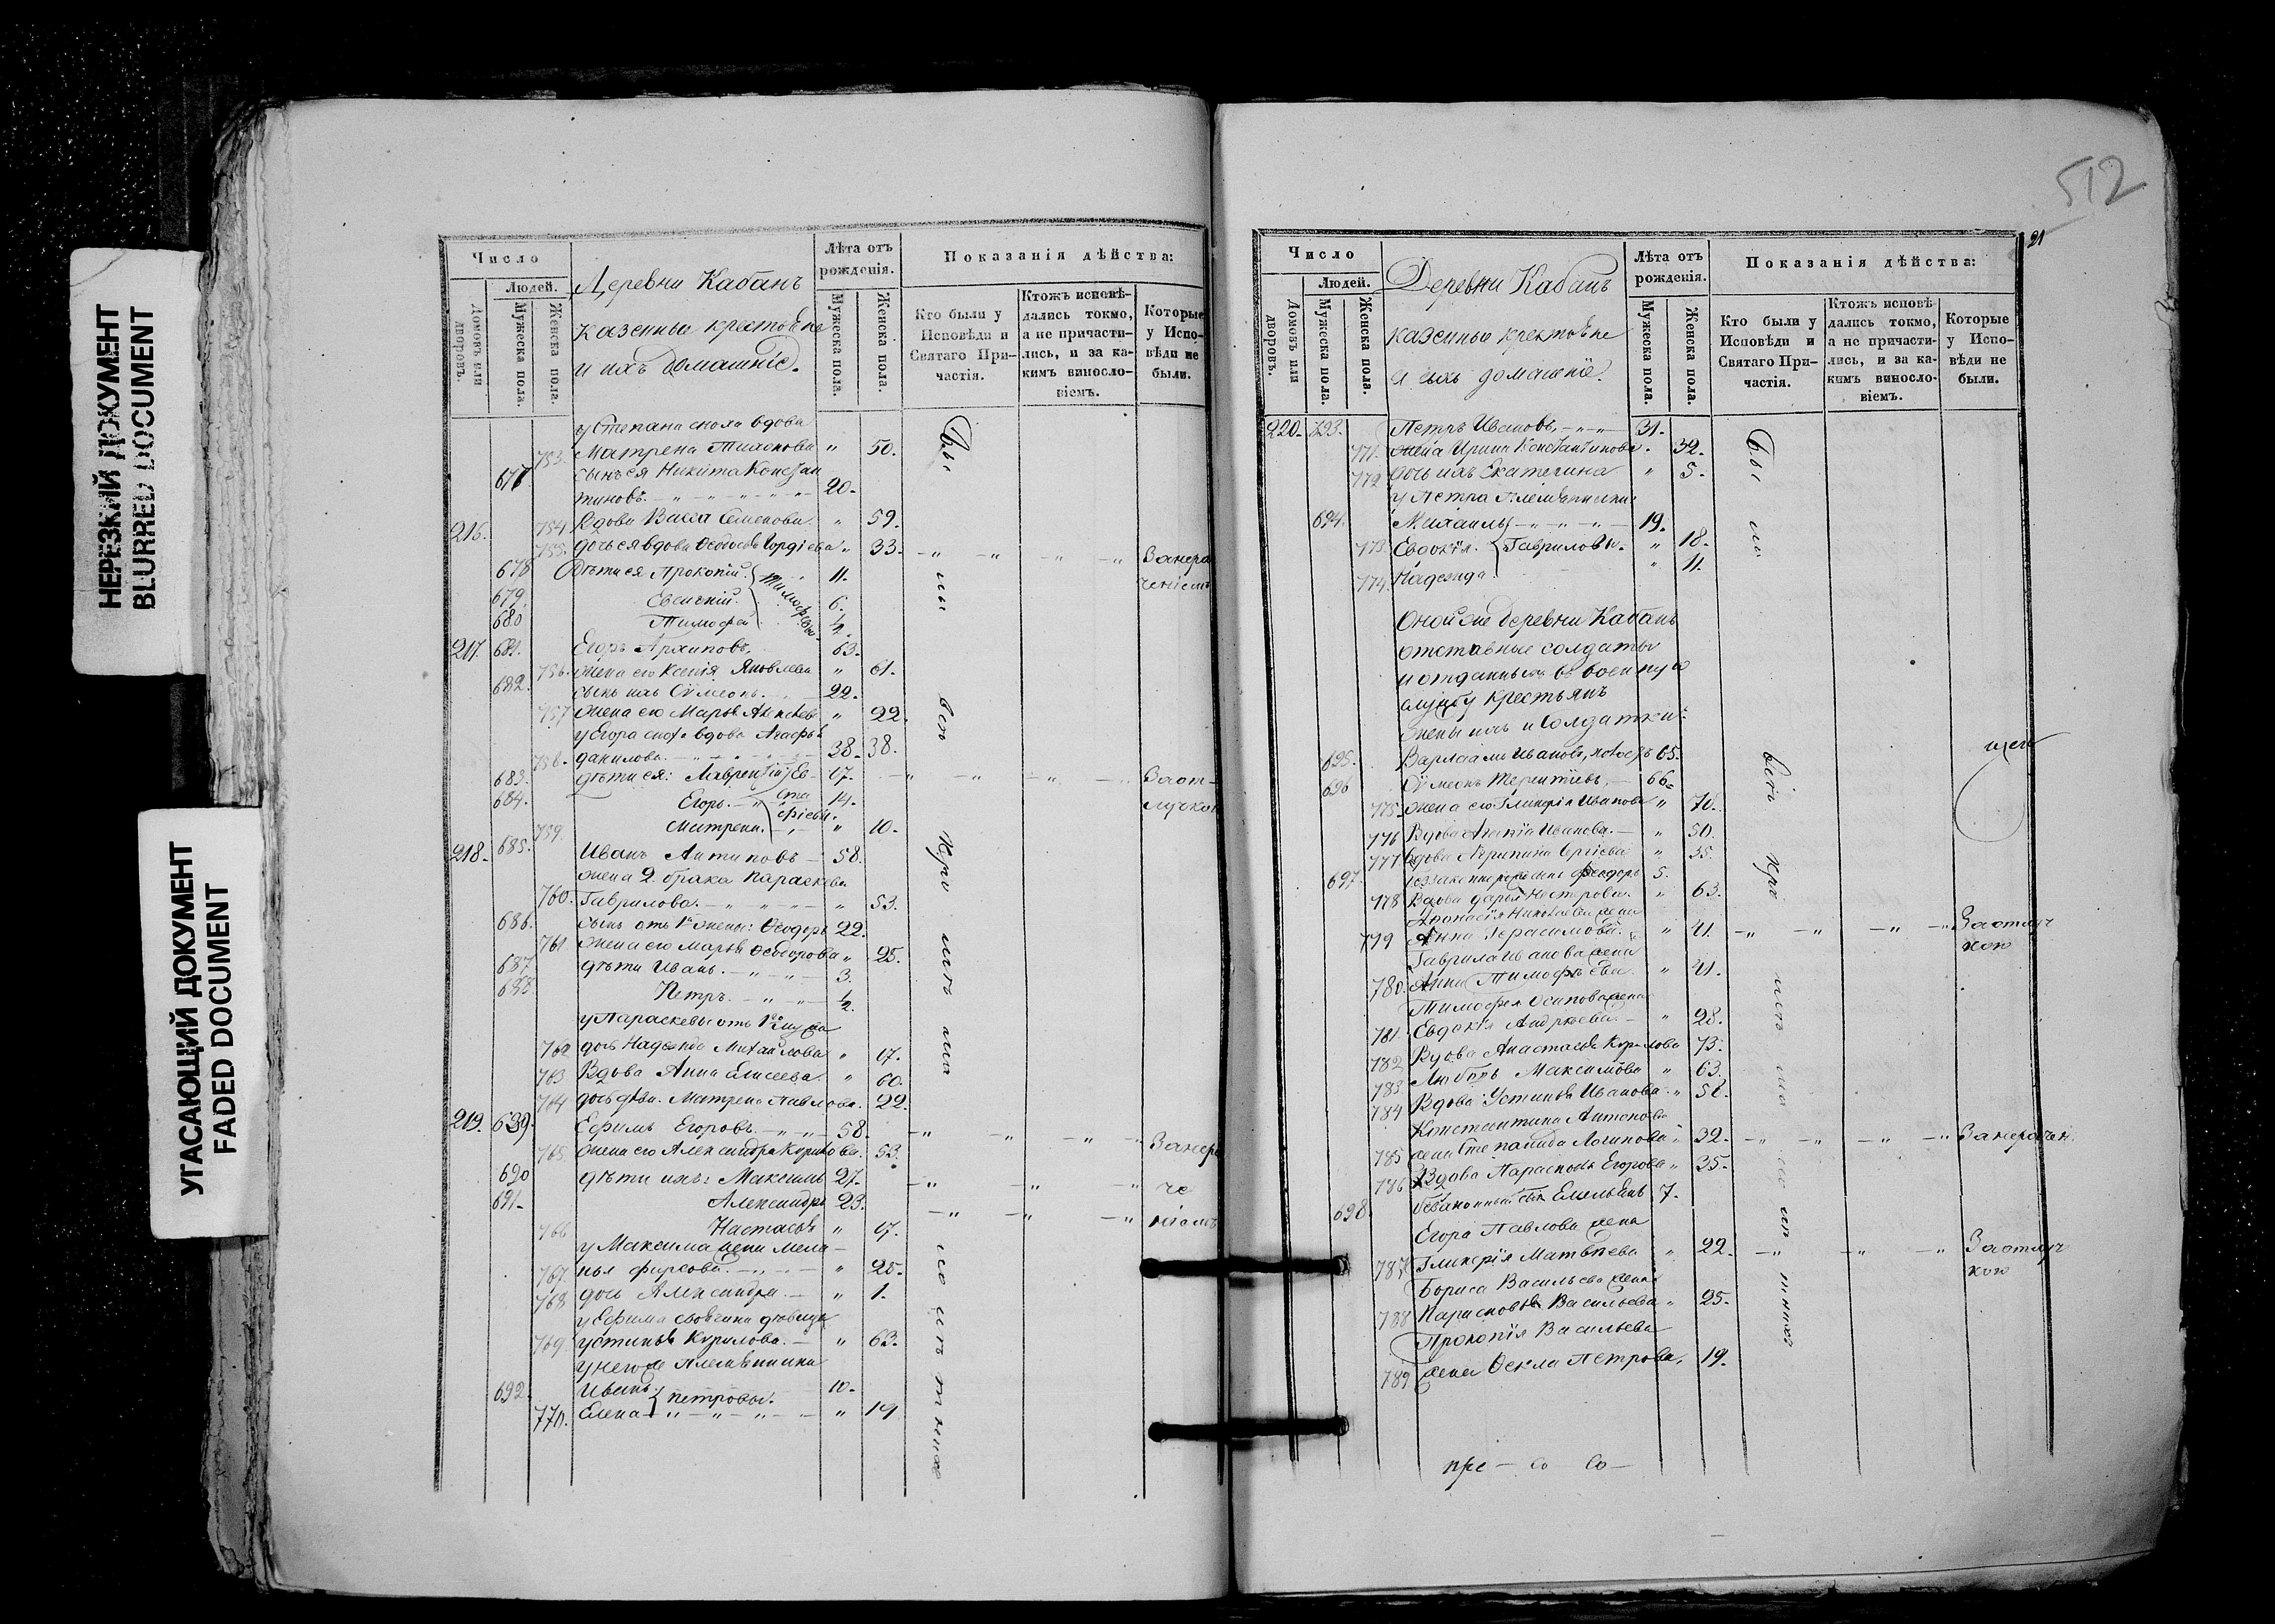 НЕРЕЗКИЙ ДОКУМЕНТ
BLURRED DOCUMENT
УГАСАЮЩИЙ ДОКУМЕНТ
FADED DOCUMENT
Число
Людей.
Домовъ или дворовъ.
Мужеска пола.
Женска пола.
Деревни Кабанъ
казенные крестьяне
и ихъ домашніе.
Лѣта отъ рожденія.
Мужеска пола.
Женска пола.
Показанія дѣйства:
Кто были у Исповѣди и Святаго При-
частія.
Ктожъ исповѣ-
дались токмо,
а не причасти-
лись, и за ка-
кимъ виносло-
віемъ.
Которые
у Испо-
вѣди не
были.
у Степана сноха вдова
753. Матрена " 50.
677 сынъ ея Никита Констан
тиновъ. 20.
216. 754. Вдова Васса Семенова. " 59.
755. дочь ея вдова Гордіева " 33. Занера
678 Дѣти ея Прокопій. 11. ченіемъ
679. Евгеній. 6.
680 Тимофей ½.
Тимофеевы
217. 681. Егоръ Архиповъ. 63.
756. жена его Ксенія Яковлева " 61.
682. сынъ ихъ Сѵмеонъ. 22.
757 жена его Марья " 22.
у Егора сноха вдова Агафья
758. данилова. 38. 38.
683. дѣти ея: Лаврентій 17. Заот-
684. Егоръ. 14. лучкою
759. Матрена. " 10.
218. 685. Иванъ Антиповъ 58.
жена 2. брака Параскева
760. Гаврилова. " 53.
686. сынъ отъ 1й жены: Ѳеодоръ 22.
761 жена его Марья Ѳеодорова " 25.
687 дѣти Иванъ. 3.
688 Петръ. ½.
у Параскевы отъ 1го мужа
762 дочь Надежда Михайлова " 17.
763 Вдова Анна Елисеева. " 60.
764 дочь Матрена Павлова. 22.
219. 689. Ефимъ Егоровъ. 58. Занера
765. жена его Александра Кирилова. 53.
690 дѣти ихъ: Максимъ 27. че
691. Александръ 23. ніемъ
766 Настасья " 17.
у Максима жена Мела-
767. нья Фирсова. " 25.
768 дочь Александра. " 1.
у Ефима своячина дѣвица
769. Устинья Кирилова. " 63.
у него же племянники
692. Иванъ. 10.
Петровы.
770. Елена " 19
512
21
Число
Людей.
Домовъ или дворовъ.
Мужеска пола.
Женска пола.
Деревни Кабанъ
казенные крестьяне
и ихъ домашніе.
Лѣта отъ рожденія.
Мужеска пола.
Женска пола.
Показанія дѣйства:
Кто были у Исповѣди и Святаго При-
частія.
Ктожъ исповѣ-
дались токмо,
а не причасти-
лись, и за ка-
кимъ виносло-
віемъ.
Которые
у Испо-
вѣди не
были.
220. 793. Петръ Ивановъ, 31.
771. жена Ирина Константинова. 32.
772 дочь ихъ Екатерина " 5.
у Петра племянники
694. Михаилъ 19.
773. Евдокія. Гавриловы. " 18.
774. Надежда. " 11.
Оной же деревни Кабанъ
отставные солдаты
и отданныхъ въ военную
службу крестьянъ
жены ихъ и солдатки:
695. Варлаамъ Ивановъ, 65.
696 Сѵмеонъ Терентіевъ, 66.
775. жена его Гликерія Иванова " 70.
776 Вдова Иванова. " 50.
777 Вдова Агрипина Сергіева " 35.
697. Ѳеодоръ 5.
778 Вдова Дарья Нестерова. " 63.
жена
779 Анна Герасимова. " 41. Заотлуч
кою
Гаврила Иванова жена
780. Анна Тимофѣева. " 41.
Тимофея Осипова жена
781. Евдокія Андреева. " 28.
782 Вдова Анастасья Кирилова 73.
783 Любовь Максимова " 63.
784 Вдова Устинья Иванова. " 58.
Константина Антонова
785 жена Степанида Логинова " 32. Занерачен.
786 Вдова Парасковья Егорова " 35.
698. Емельянъ 7.
Егора Павлова жена
787. Гликерія Матвѣева " 22. Заотлуч
кою
Бориса Васильева жена
788 Парасковья Васильева " 25.
Прокопія Васильева
789 жена Ѳекла Петрова. 19.